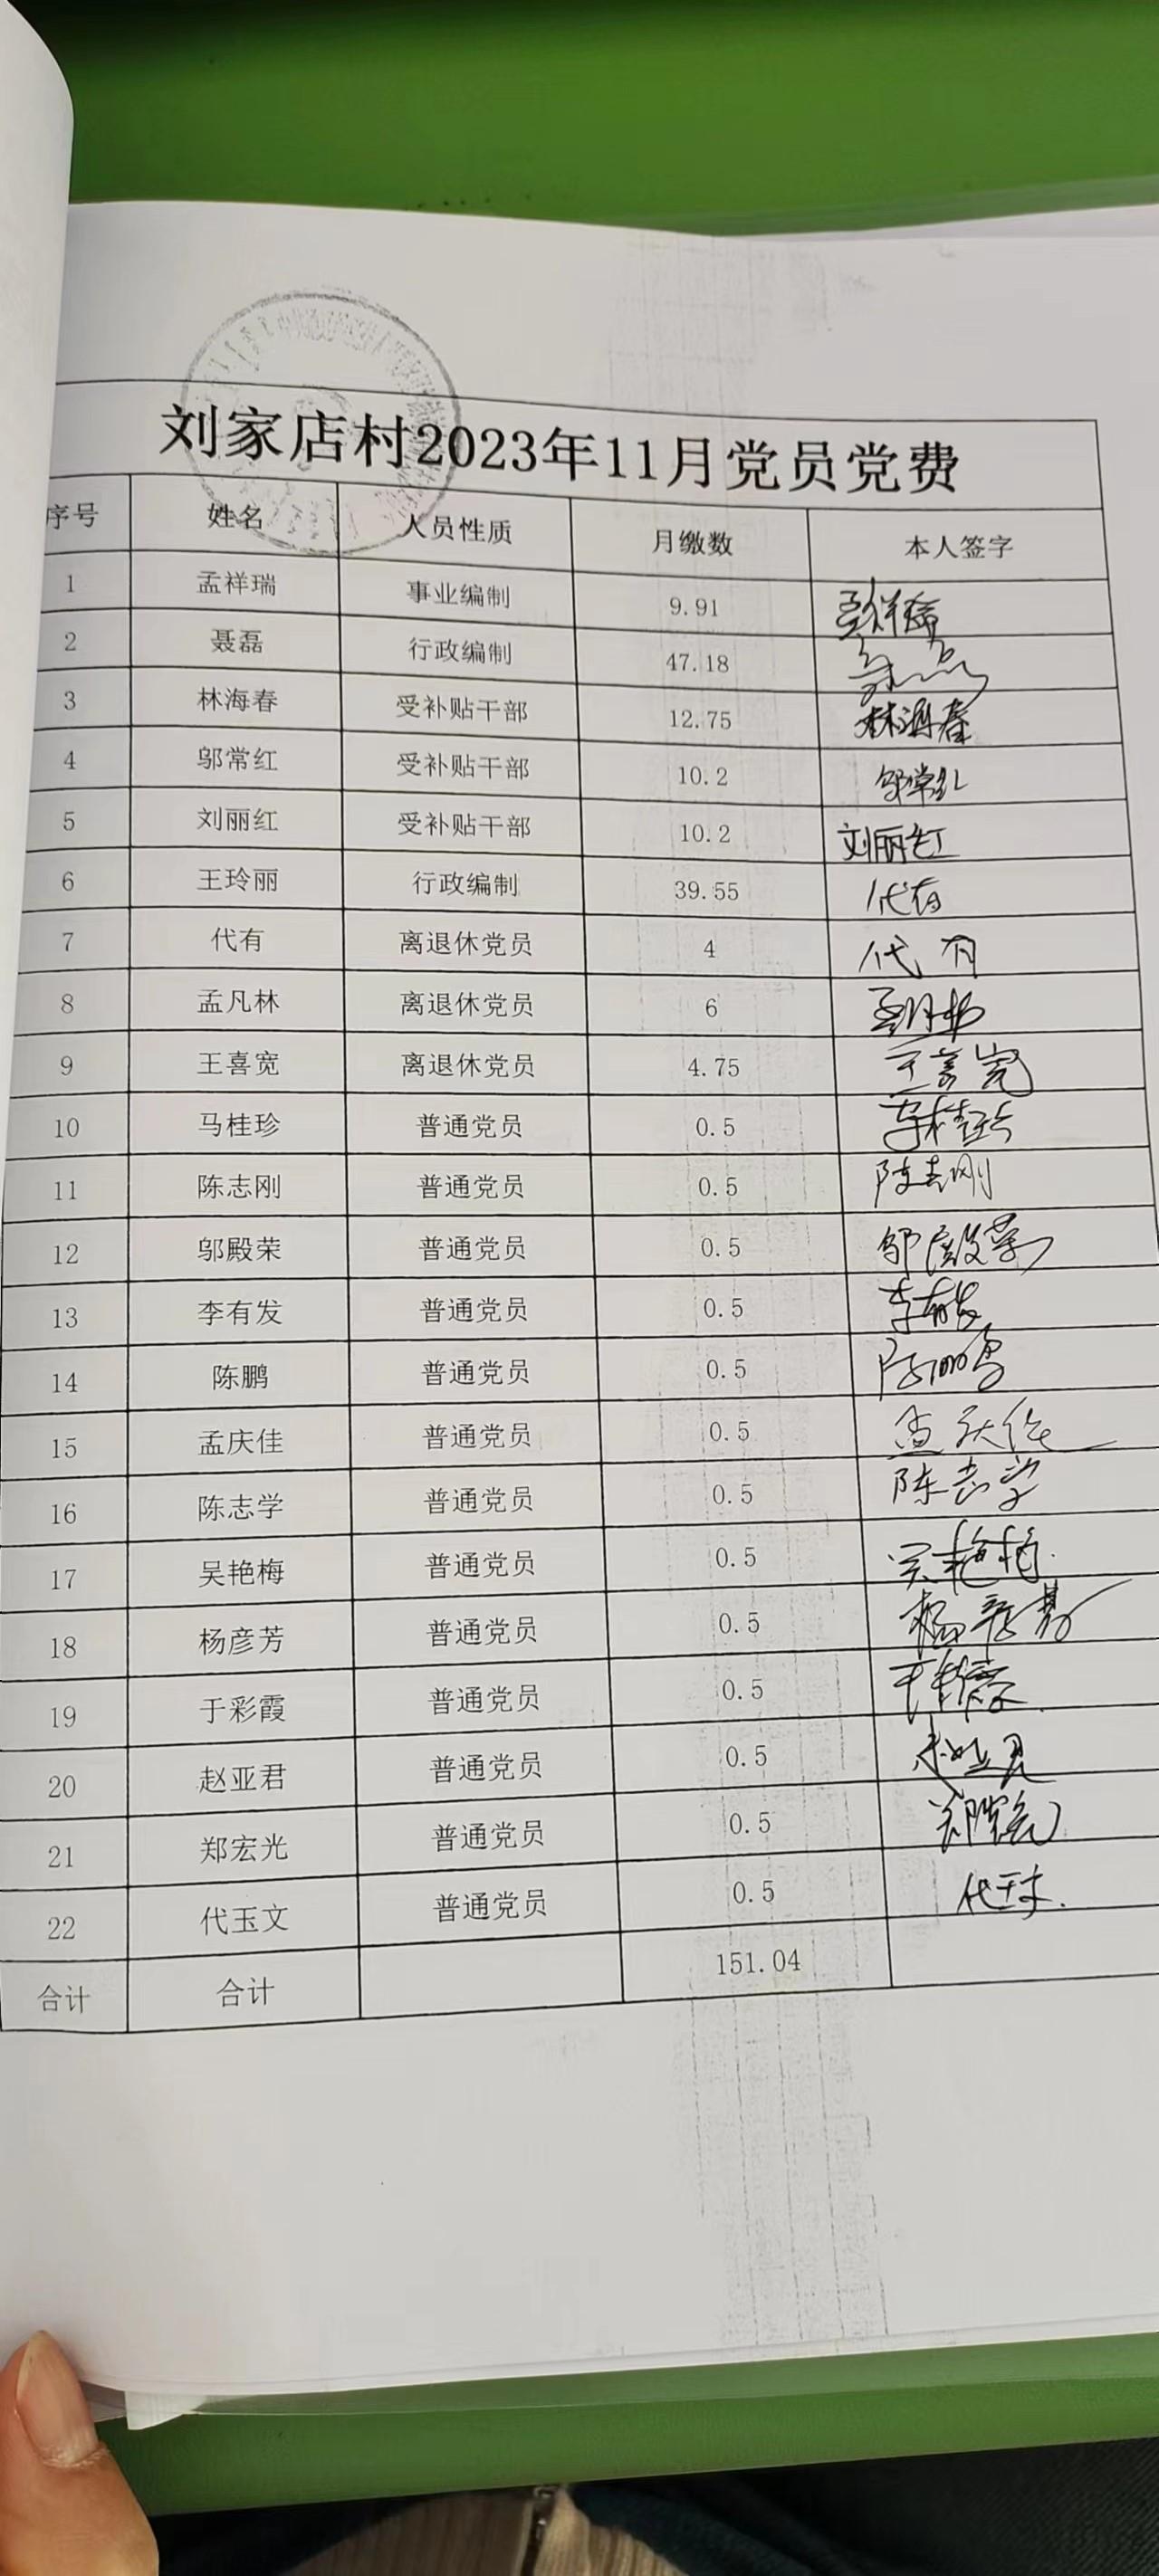 刘家店村2023年11月党员党费
序号 姓名 人员性质 月缴数 本人签字
1 孟祥瑞 事业编制 9.91 孟祥瑞
2 聂磊 行政编制 47.18
3 林海春 受补贴干部 12.75 林海春
4 邬常红 受补贴干部 10.2 邬常红
5 刘丽红 受补贴干部 10.2 刘丽红
6 王玲丽 行政编制 39.55 代有
7 代有 离退休党员 4 代有
8 孟凡林 离退休党员 6
9 王喜宽 离退休党员 4.75 王喜宽
10 马桂珍 普通党员 0.5
11 陈志刚 普通党员 0.5 陈志刚
12 邬殿荣 普通党员 0.5 邬殿荣
13 李有发 普通党员 0.5 李有发
14 陈鹏 普通党员 0.5 陈鹏
15 孟庆佳 普通党员 0.5
16 陈志学 普通党员 0.5 陈志学
17 吴艳梅 普通党员 0.5 吴艳梅
18 杨彦芳 普通党员 0.5 杨彦芳
19 于彩霞 普通党员 0.5
20 赵亚君 普通党员 0.5 赵亚君
21 郑宏光 普通党员 0.5 郑宏光
22 代玉文 普通党员 0.5
合计 合计 151.04